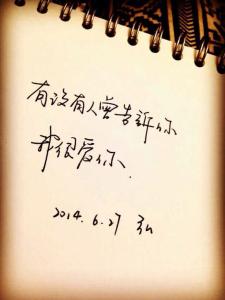 有没有人曾告訴你
我很爱你.
2014.6.27